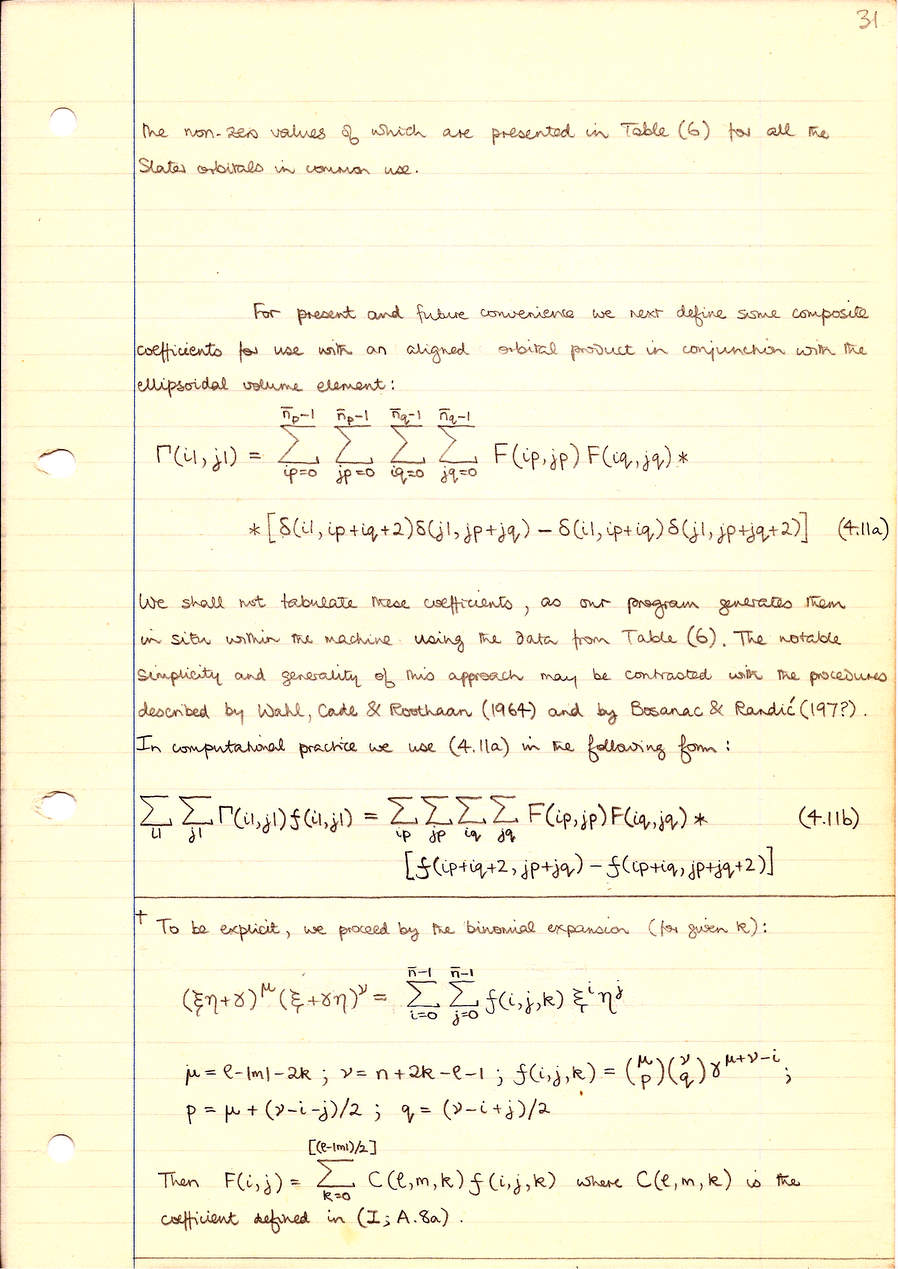 31
the non-zero values of which are presented in Table (6) for all the
Slater orbitals in common use.
For present and future convenience we next define some composite
coefficients for use with an aligned orbital product in conjunction with the
ellipsoidal volume element:
Γ(i1,j1) = ∑_{ip=0}^{n̄p-1} ∑_{jp=0}^{n̄p-1} ∑_{iq=0}^{n̄q-1} ∑_{jq=0}^{n̄q-1} F(ip,jp) F(iq,jq) *
* [δ(i1,ip+iq+2)δ(j1,jp+jq) − δ(i1,ip+iq)δ(j1,jp+jq+2)] (4.11a)
We shall not tabulate these coefficients, as our program generates them
in situ within the machine using the data from Table (6). The notable
simplicity and generality of this approach may be contrasted with the procedures
described by Wahl, Cade & Roothaan (1964) and by Bosanac & Randić (197?).
In computational practice we use (4.11a) in the following form:
∑_{i1} ∑_{j1} Γ(i1,j1) f(i1,j1) = ∑_{ip} ∑_{jp} ∑_{iq} ∑_{jq} F(ip,jp) F(iq,jq) * (4.11b)
[f(ip+iq+2, jp+jq) − f(ip+iq, jp+jq+2)]
† To be explicit, we proceed by the binomial expansion (for given k):
(ξη+γ)^μ (ξ+γη)^ν = ∑_{i=0}^{n̄-1} ∑_{j=0}^{n̄-1} f(i,j,k) ξ^i η^j
μ = ℓ-|m|-2k ; ν = n+2k-ℓ-1 ; f(i,j,k) = (μ p)(ν q) γ^{μ+ν-i} ;
p = μ + (ν-i-j)/2 ; q = (ν-i+j)/2
Then F(i,j) = ∑_{k=0}^{[(ℓ-|m|)/2]} C(ℓ,m,k) f(i,j,k) where C(ℓ,m,k) is the
coefficient defined in (I; A.8a).